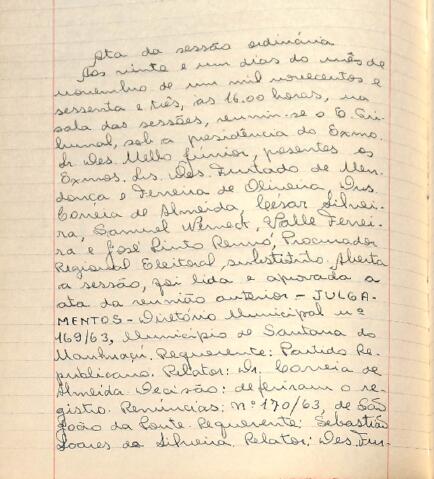 Ata da sessão ordinária
Aos vinte e um dias do mês de
novembro de um mil novecentos e
sessenta e três, as 16.00 horas, na
sala das sessões, reuniu-se o E. Tri-
bunal, sob a presidência do Exmo.
Sr. Des. Mello Júnior, presentes os
Exmos. Srs. Des. Furtado de Men-
donça e Ferreira de Oliveira, Drs.
Correia de Almeida, Cesar Silvei-
ra, Samuel Werneck, Valle Ferrei-
ra e José Pinto Rennó, Procurador
Regional Eleitoral, substituto. Aberta
a sessão, foi lida e aprovada a
ata da reunião anterior - JULGA-
MENTOS - Diretório Municipal nº
169/63, Município de Santana do
Manhuaçú. Requerente: Partido Re-
publicano. Relator: Dr. Correia de
Almeida. Decisão: deferiram o re-
gistro. Renúncias: nº 170/63, de São
João da Ponte. Requerente: Sebastião
Soares da Silveira. Relator: Des. Fur-